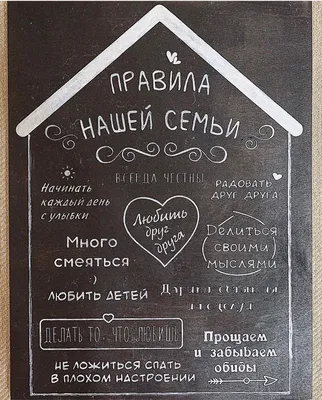 ПРАВИЛА
НАШЕЙ СЕМЬИ
ВСЕГДА ЧЕСТНЫ
Начинать
каждый день
с улыбки
РАДОВАТЬ
ДРУГ ДРУГА
Любить
друг
друга
Много
смеяться
:)
Делиться
своими
мыслями
ЛЮБИТЬ ДЕТЕЙ
ДЕЛАТЬ ТО, ЧТО ЛЮБИШЬ
Прощаем
и забываем
обиды
НЕ ЛОЖИТЬСЯ СПАТЬ
В ПЛОХОМ НАСТРОЕНИИ